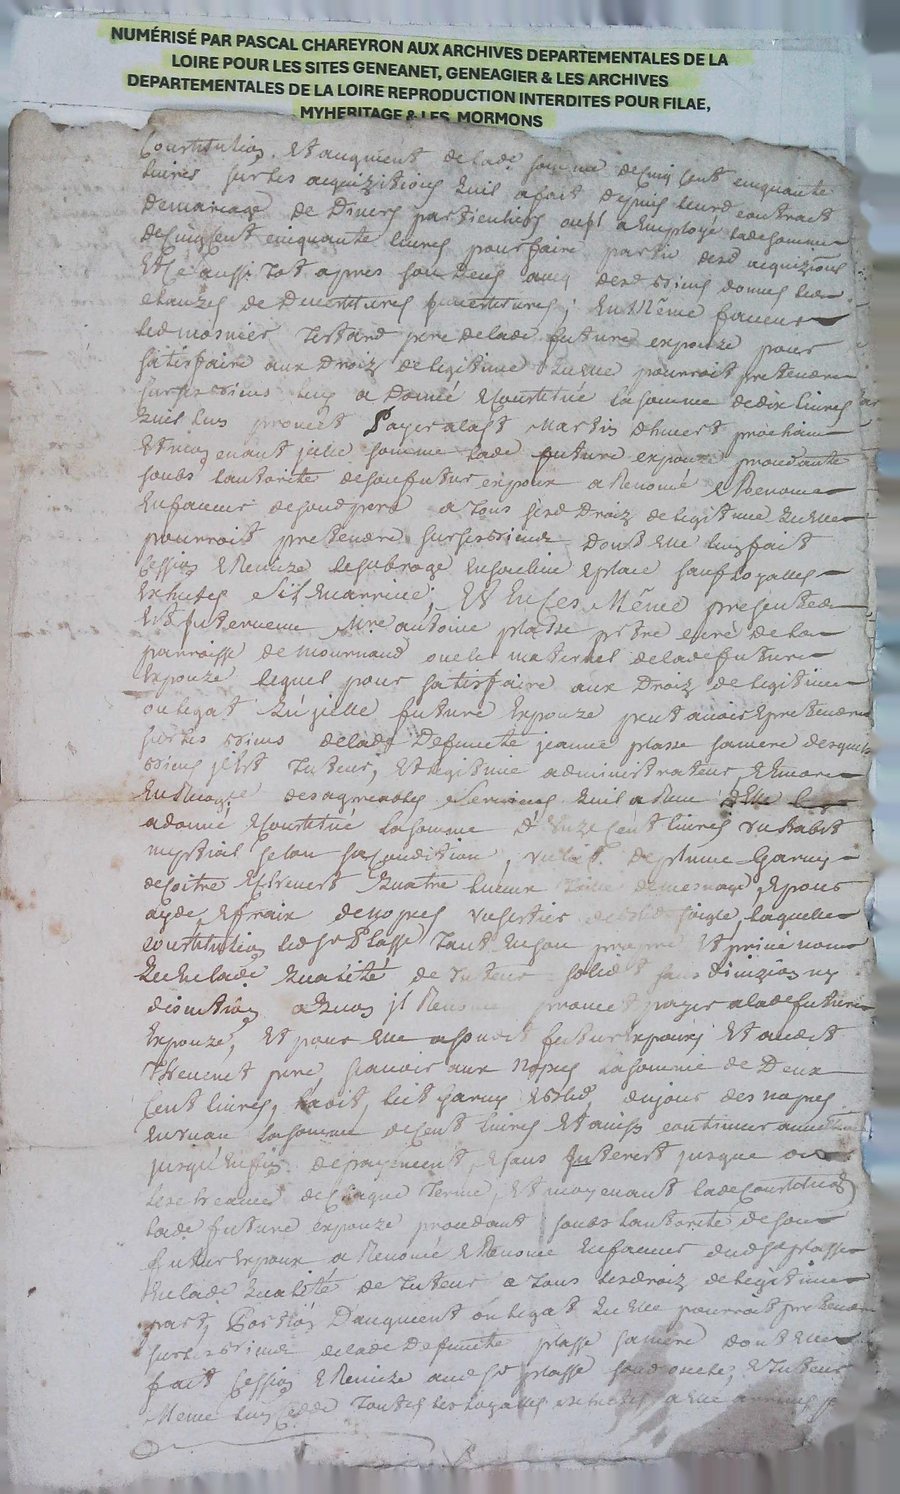 NUMÉRISÉ PAR PASCAL CHAREYRON AUX ARCHIVES DEPARTEMENTALES DE LA
LOIRE POUR LES SITES GENEANET, GENEAGIER & LES ARCHIVES
DEPARTEMENTALES DE LA LOIRE REPRODUCTION INTERDITES POUR FILAE,
MYHERITAGE & LES MORMONS
Constitution Et augment de lade somme de Cinq Cent cinquante
livres sur les acquizitions quil a fait depuis leurd contract
de mariage de Divers particuliers a Employé lade somme
de Cinq Cent cinquante livres pour faire partie desd acquizitions
Et aussi tot apres
En Même faveur
led mosnier Testard pere de lade future expouze pour
satisfaire aux Droiz de legitime quelle pourroit pretendre
sur ses biens luy a Donné Constitué la somme de dix livres
quil luy promet Payer a la st Martin dhivert prochain
Et moyenant jcelle somme lade future expouze procedante
soubs lautorite de son futur expoux a Renoncé & Renonce
En faveur de sond pere a Tous sesd Droiz de legitime quelle
pourroit pretendre sur ses biens Dont Elle luy fait
Cession & Remize le subroge En son lieu & place sauf loyalles
Exhutes sil En arrive; Et En Ces Même presentes
Est Intervenu Mre antoine plasse ptre curé de la
parroisse de mournand oncle maternel de lade future
Expouze lequel pour satisfaire aux Droiz de legitime
ou legat qu'jcelle future Expouze peut avoir & pretendre
sur les biens de lade Defuncte jeanne plasse sa mere desquels
biens jl est Tuteur, Et legitime administrateur, & Encore
des agreables services quil a Receu D'Elle
a donné & Constitué la somme D'Unze Cent livres un habit
nuptial selon sa Condition, un lit de plume Garny
de Coitre & Couvert quatre
ayde & fraix de nopces un setier de bled seigle, laquelle
Constitution led sr Plasse Tant En son propre Et privé nom
qu'En lade qualité de Tuteur solid sans Division ny
discution a quoy jl Renonce promet payer a lade future
Expouze, Et pour Elle a sondt futur Expoux, Et audit
Thevenet pere scavoir aux Nopces la somme de Deux
Cent livres, habit, lit Garny & bled, du jour des nopces
En un an la somme de Cent livres Et ainsy continuer
jusqu'En fin de payement, & sans Interest jusque
lescheance de Chaque Terme, Et moyenant lade Constitution
lade future expouze procedant soubs lautorite de son
futur Expoux a Renoncé & Renonce En faveur dud sr plasse
En lade qualité de Tuteur a Tous sesdroiz de legitime
part, Portion D'augment ou legat quelle pourroit pretendre
sur les biens de lade Defuncte plasse sa mere dont Elle
fait Cession & Remize aud sr plasse sond oncle, & Tuteur
Meme luy Cede Toutes les loyalles exhutes